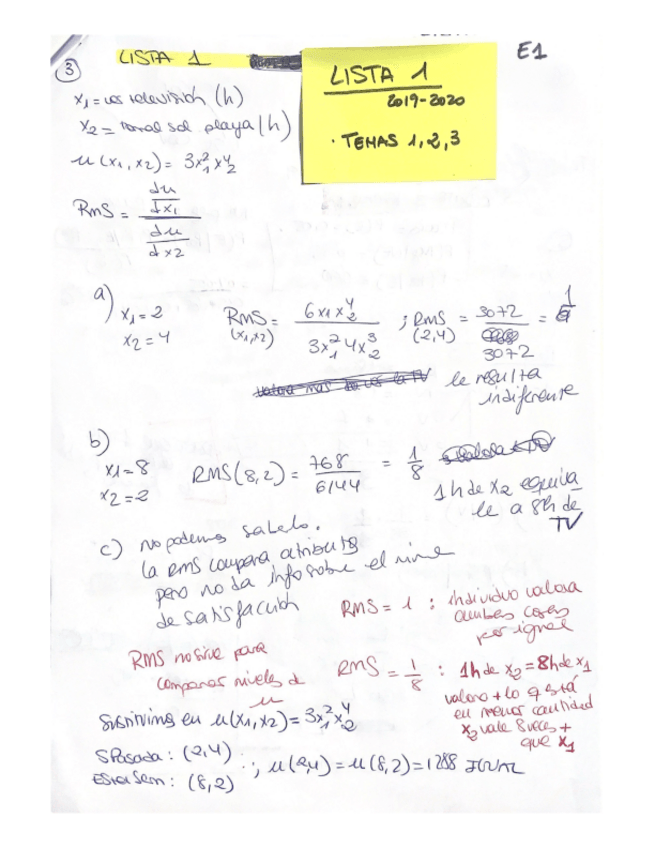 E1
③ LISTA 1
LISTA 1
2019-2020
· TEMAS 1, 2, 3
x₁ = ver televisión (h)
x₂ = tomar sol playa (h)
u(x₁, x₂) = 3x₁²x₂⁴
RMS = du/dx₁ / du/dx₂
a) x₁ = 2
x₂ = 4
RMS (x₁,x₂) = 6x₁x₂⁴ / 3x₁²4x₂³ ; RMS (2,4) = 3072 / 3072 = 1
le resulta
indiferente
b)
x₁=8
x₂=2
RMS(8,2) = 768 / 6144 = 1/8
1h de x₂ equiva
le a 8h de
TV
c) no podemos saberlo.
la RMS compara atributos
pero no da info sobre el nivel
de satisfacción
RMS = 1 : individuo valora
ambas cosas
por igual
RMS no sirve para
comparar niveles de
u
RMS = 1/8 : 1h de x₂ = 8h de x₁
valora + lo q está
en menor cantidad
x₂ vale 8 veces +
que x₁
Sustituimos en u(x₁,x₂) = 3x₁²x₂⁴
S Pasada: (2,4)
Esta Sem: (8,2)
∴ u(2,4) = u(8,2) = 1288 IGUAL